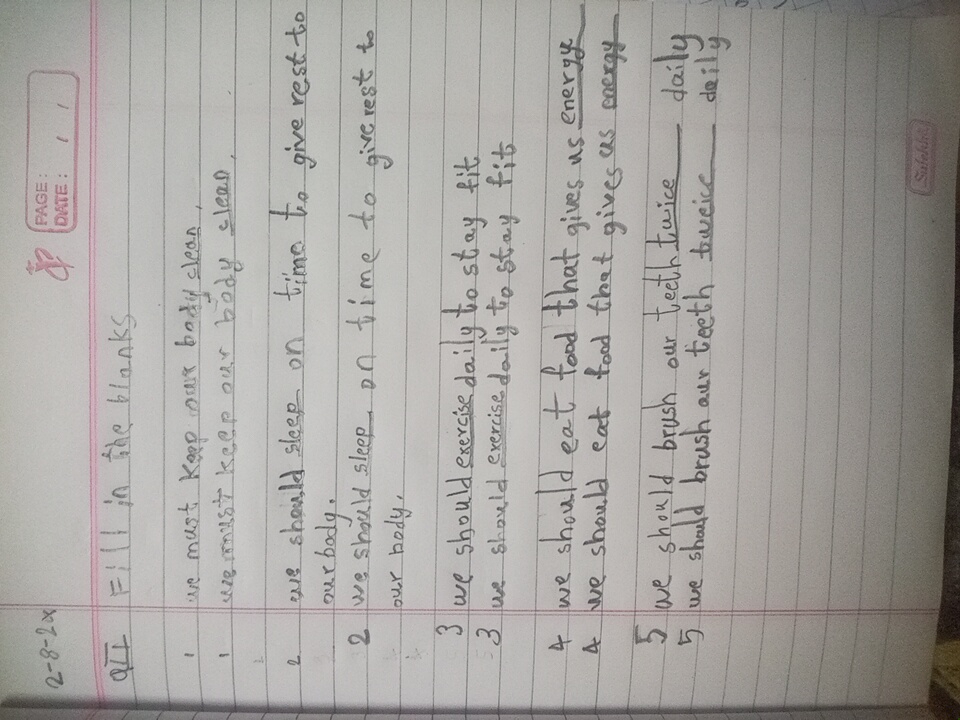 PAGE:
DATE: / /
2-8-2x
QII Fill in the blanks
1 we must keep our body clean.
1 we must keep our body clean.
2 we should sleep on time to give rest to
our body.
2 we should sleep on time to give rest to
our body.
3 we should exercise daily to stay fit
3 we should exercise daily to stay fit
4 we should eat food that gives us energy
4 we should eat food that gives us energy
5 we should brush our teeth twice daily
5 we should brush our teeth tweice daily